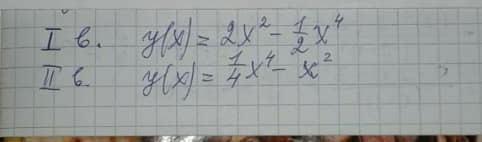 I в. y(x) = 2x² - 1/2 x⁴
II в. y(x) = 1/4 x⁴ - x²